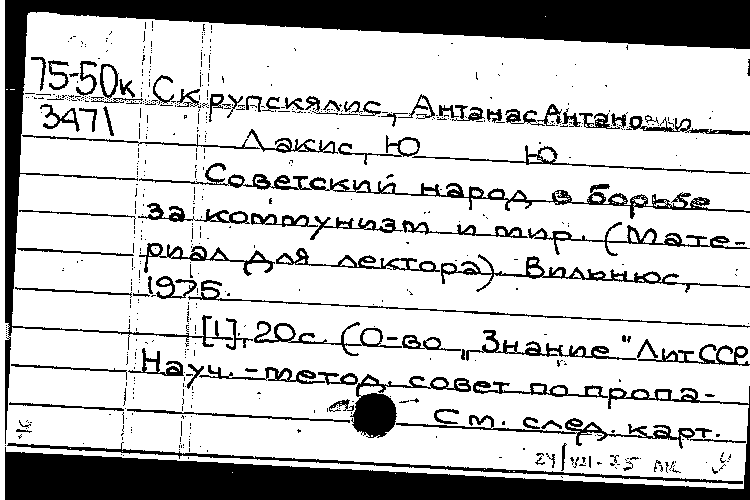 75-50к Скрупскялис, Антанас Антано
3471
Лакис, Ю Ю
Советский народ в борьбе
за коммунизм и мир. (Мате-
риал для лектора). Вильнюс,
1975.
[1], 20с. (О-во „Знание" ЛитССР
Науч.-метод. совет по пропа-
См. след. карт.
24/VII-75